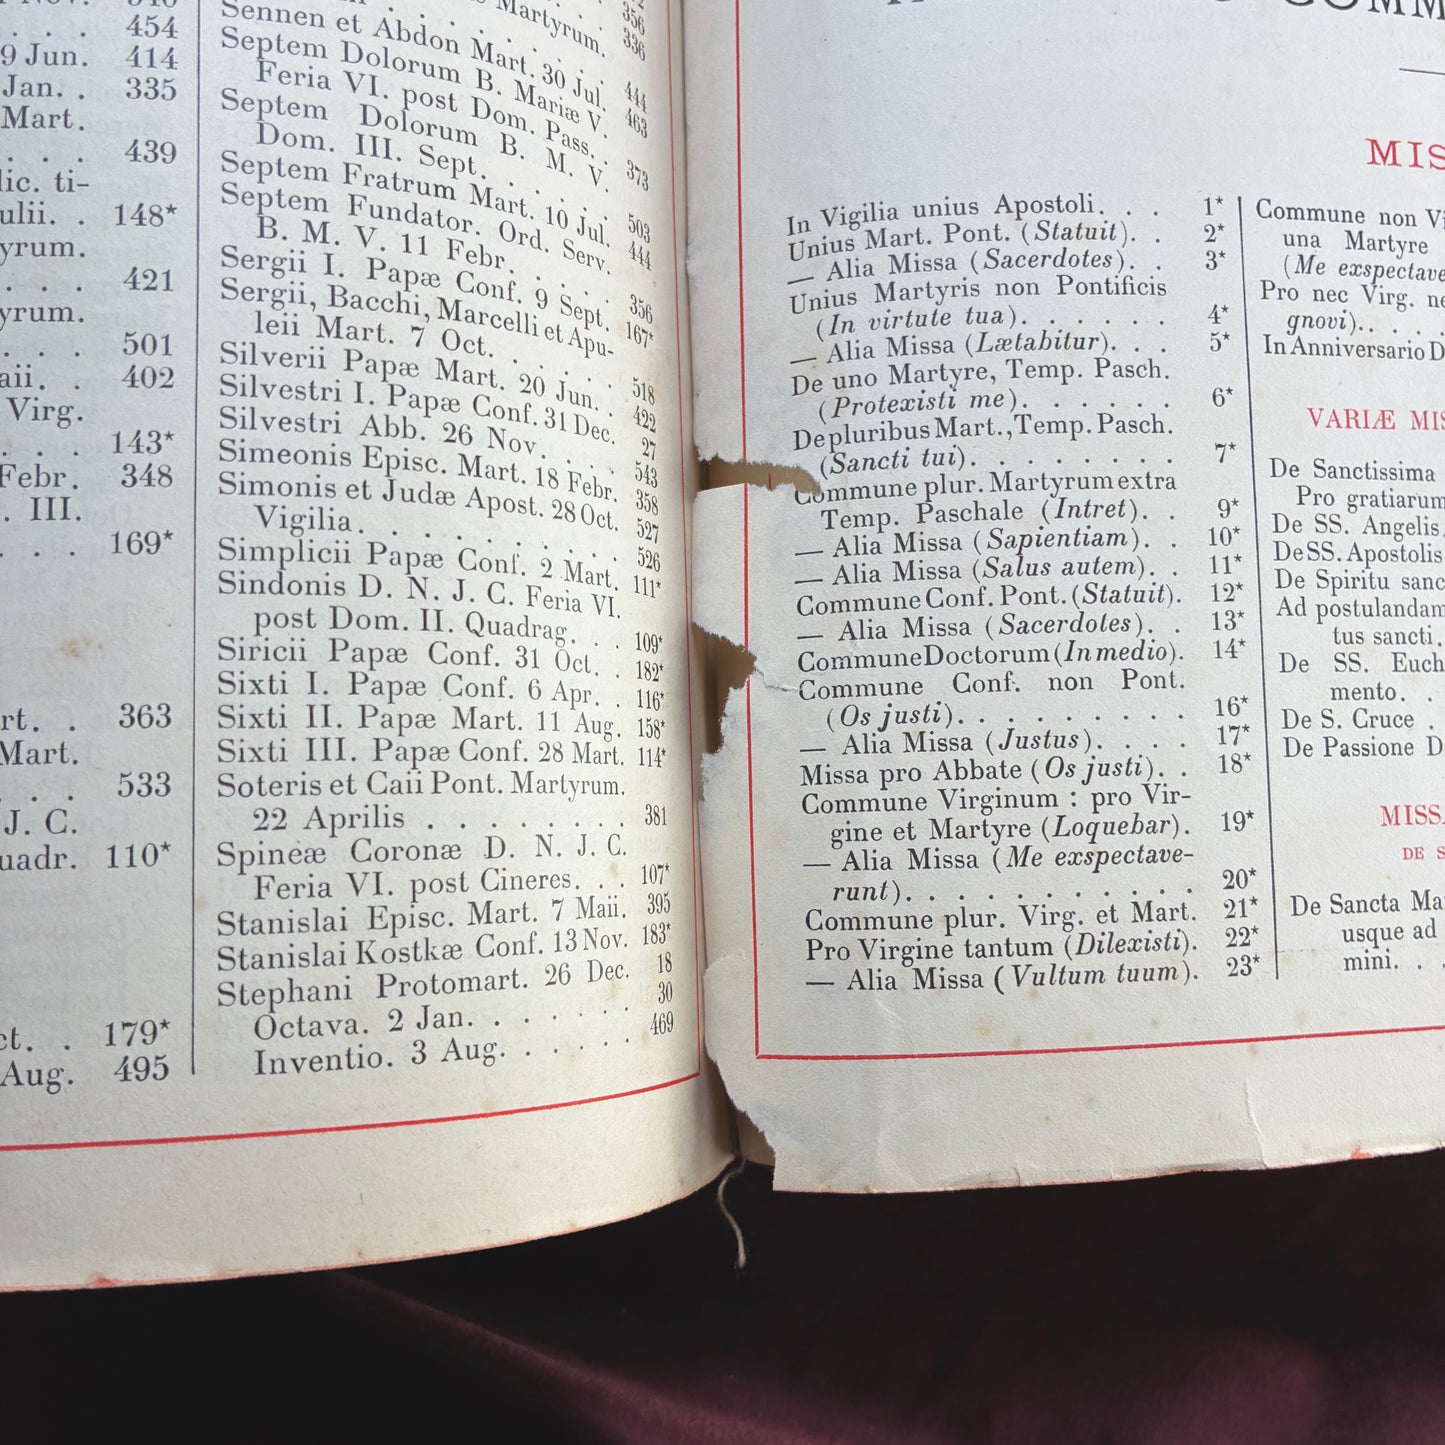 454
9 Jun. 414
Jan. . 335
Mart.
. . . 439
lic. ti-
ulii. . 148*
yrum.
. . . 421
yrum.
. . . 501
aii. . 402
Virg.
. . . 143*
Febr. 348
. III.
. . . 169*
rt. . 363
Mart.
. . . 533
J. C.
uadr. 110*
ct. . 179*
Aug. 495
Martyrum. 336
Sennen et Abdon Mart. 30 Jul. 444
Septem Dolorum B. Mariæ V.
Feria VI. post Dom. Pass. . 373
Septem Dolorum B. M. V.
Dom. III. Sept. . . . . . 503
Septem Fratrum Mart. 10 Jul. 444
Septem Fundator. Ord. Serv.
B. M. V. 11 Febr. . . . . 356
Sergii I. Papæ Conf. 9 Sept. 167*
Sergii, Bacchi, Marcelli et Apu-
leii Mart. 7 Oct. . . . . . 518
Silverii Papæ Mart. 20 Jun. . 422
Silvestri I. Papæ Conf. 31 Dec. 27
Silvestri Abb. 26 Nov. . . . . 543
Simeonis Episc. Mart. 18 Febr. 358
Simonis et Judæ Apost. 28 Oct. 527
Vigilia. . . . . . . . . . 526
Simplicii Papæ Conf. 2 Mart. 111*
Sindonis D. N. J. C. Feria VI.
post Dom. II. Quadrag. . . 109*
Siricii Papæ Conf. 31 Oct. . 182*
Sixti I. Papæ Conf. 6 Apr. . 116*
Sixti II. Papæ Mart. 11 Aug. 158*
Sixti III. Papæ Conf. 28 Mart. 114*
Soteris et Caii Pont. Martyrum.
22 Aprilis . . . . . . . . 381
Spineæ Coronæ D. N. J. C.
Feria VI. post Cineres. . . 107*
Stanislai Episc. Mart. 7 Maii. 395
Stanislai Kostkæ Conf. 13 Nov. 183*
Stephani Protomart. 26 Dec. 18
Octava. 2 Jan. . . . . . . 30
Inventio. 3 Aug. . . . . . 469
MIS
In Vigilia unius Apostoli. . . 1*
Unius Mart. Pont. (Statuit). . 2*
— Alia Missa (Sacerdotes). . 3*
Unius Martyris non Pontificis
(In virtute tua). . . . . . 4*
— Alia Missa (Lætabitur). . . 5*
De uno Martyre, Temp. Pasch.
(Protexisti me). . . . . . 6*
De pluribus Mart., Temp. Pasch.
(Sancti tui). . . . . . . . 7*
Commune plur. Martyrum extra
Temp. Paschale (Intret). . 9*
— Alia Missa (Sapientiam). . 10*
— Alia Missa (Salus autem). . 11*
Commune Conf. Pont. (Statuit). 12*
— Alia Missa (Sacerdotes). . 13*
Commune Doctorum (In medio). 14*
Commune Conf. non Pont.
(Os justi). . . . . . . . . 16*
— Alia Missa (Justus). . . . 17*
Missa pro Abbate (Os justi). . 18*
Commune Virginum : pro Vir-
gine et Martyre (Loquebar). 19*
— Alia Missa (Me exspectave-
runt). . . . . . . . . . . 20*
Commune plur. Virg. et Mart. 21*
Pro Virgine tantum (Dilexisti). 22*
— Alia Missa (Vultum tuum). 23*
Commune non Vi
una Martyre
(Me exspectave
Pro nec Virg. ne
gnovi). . . . .
In Anniversario D
VARIÆ MIS
De Sanctissima
Pro gratiarum
De SS. Angelis.
De SS. Apostolis
De Spiritu sanc
Ad postulandam
tus sancti.
De SS. Euch
mento. .
De S. Cruce .
De Passione D
MISSA
DE S
De Sancta Ma
usque ad
mini. . .